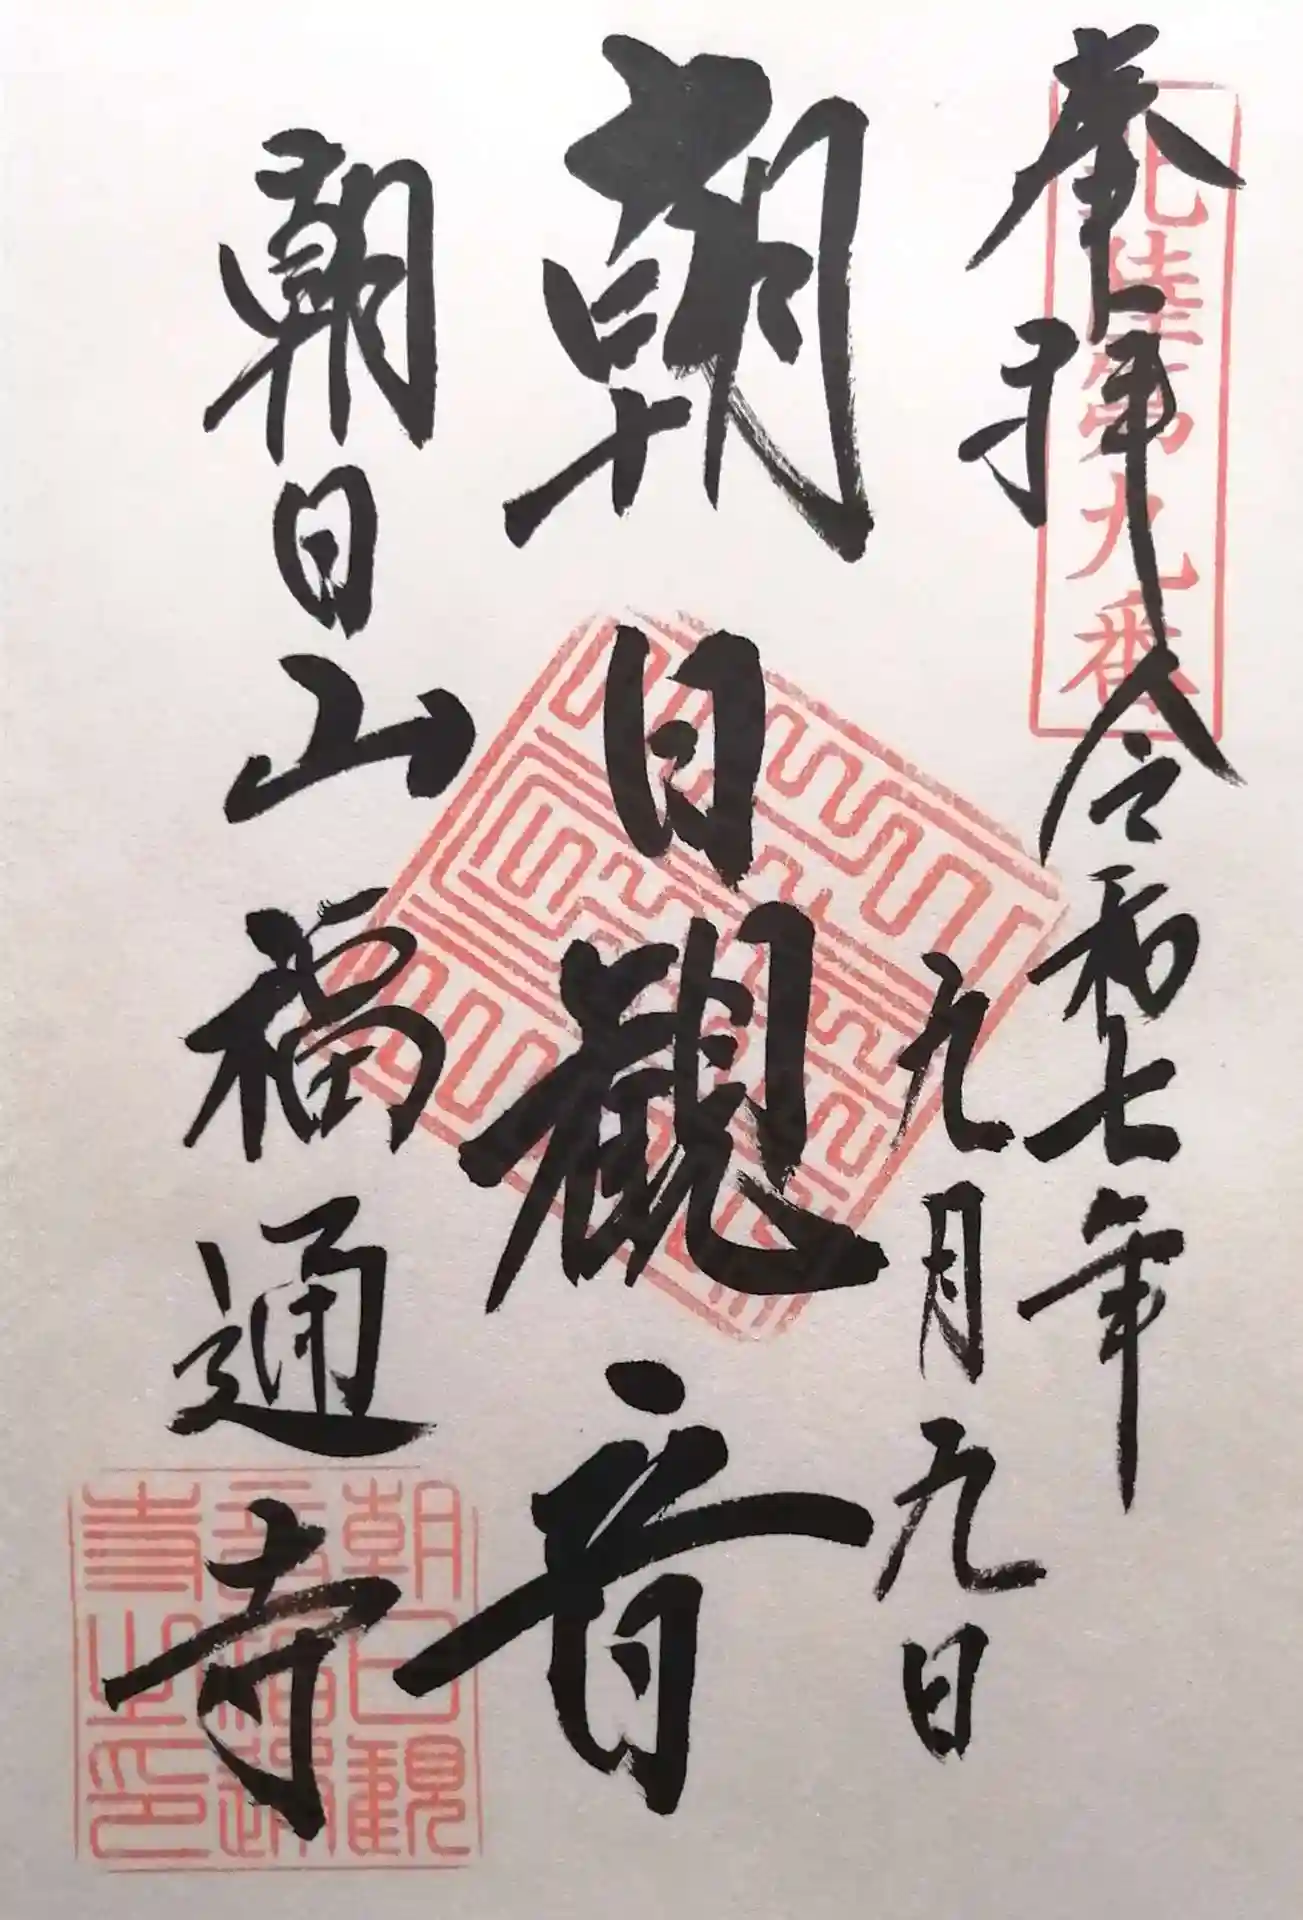 奉拝
北陸第九番
令和七年
九月九日
朝日観音
朝日山福通寺
朝日観
音福通
寺之印